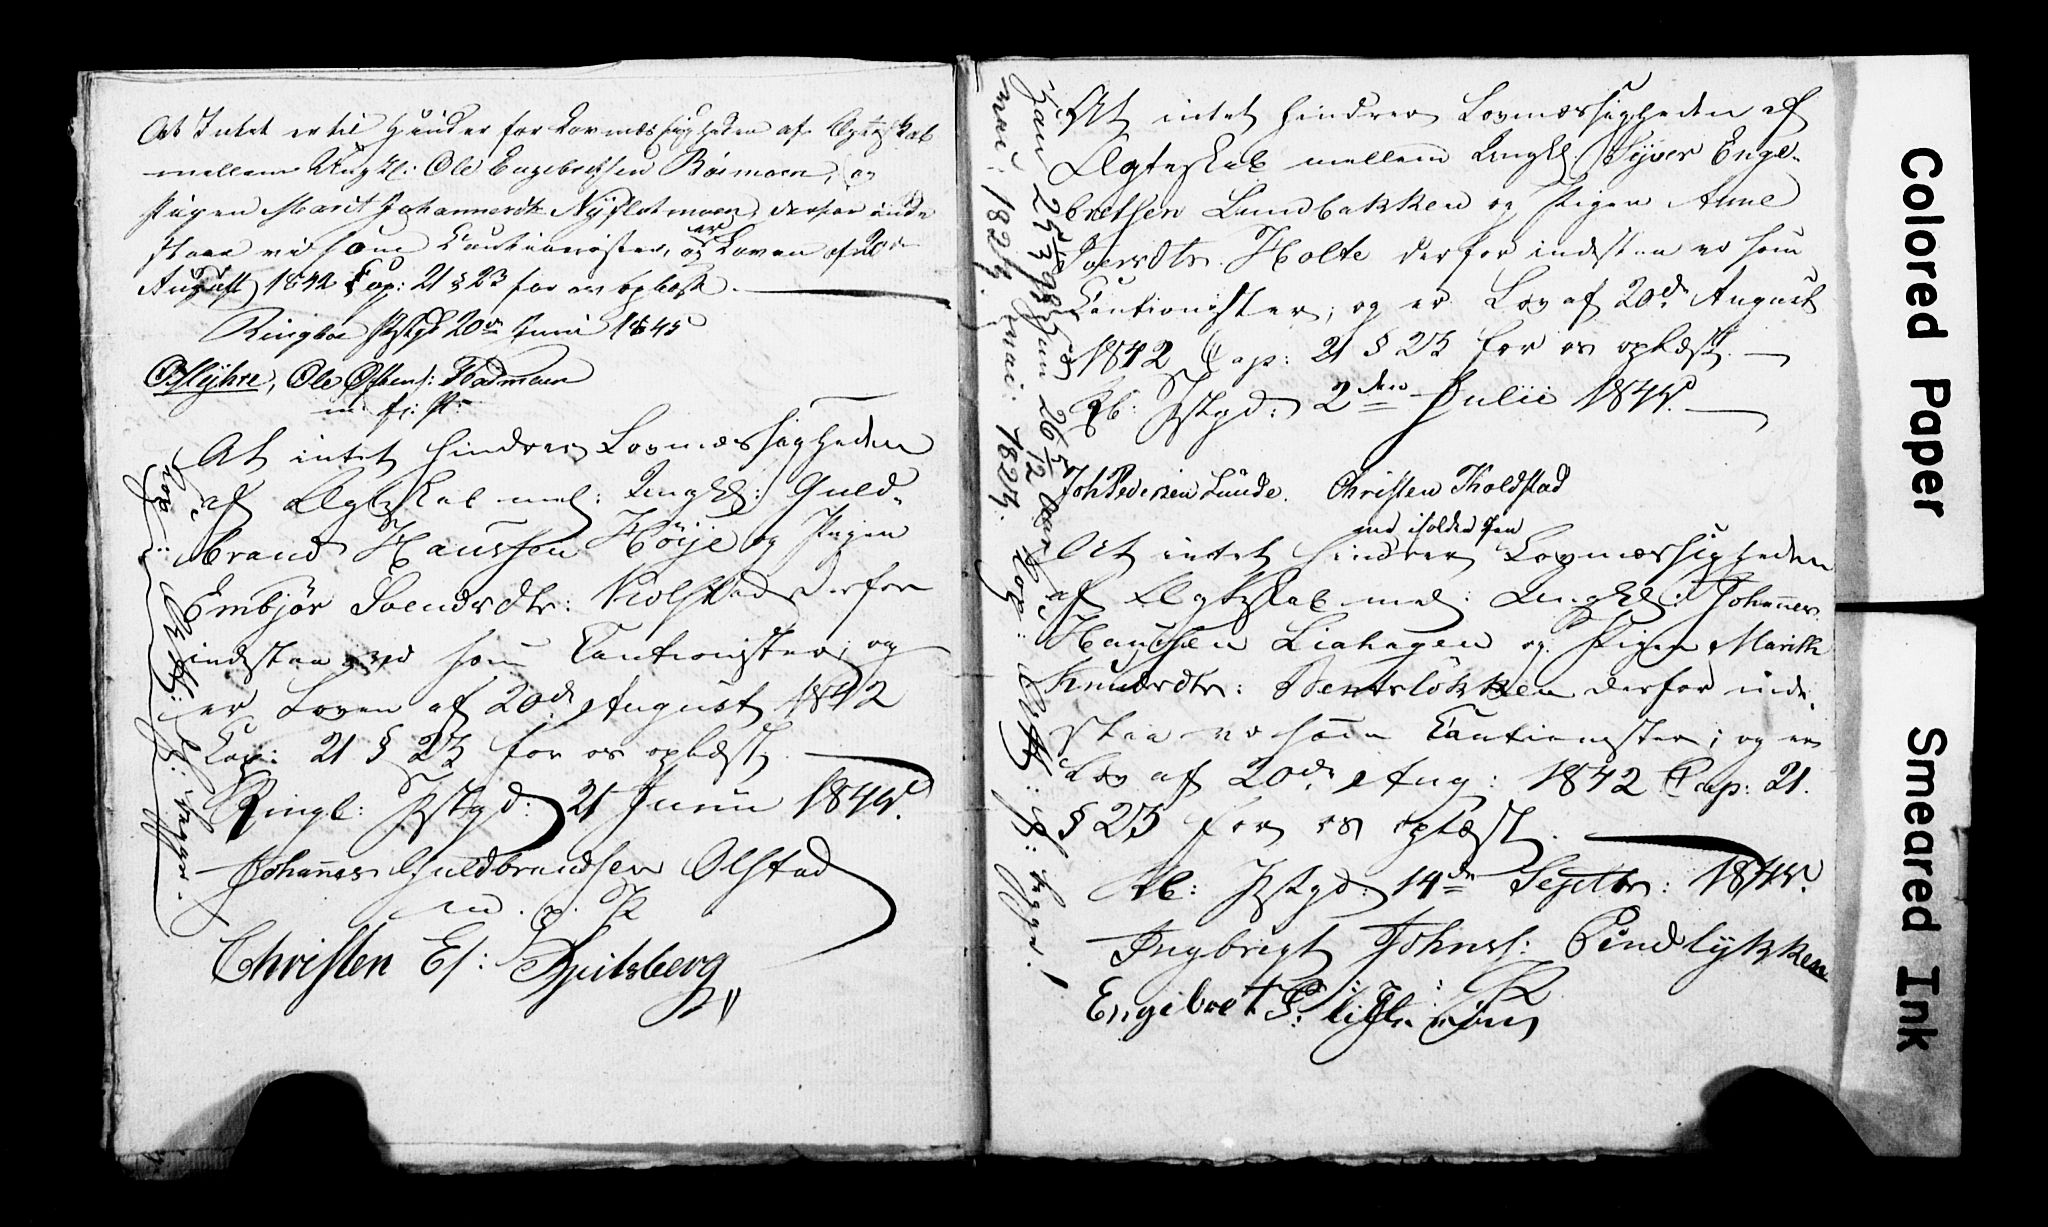 At Intet er til Hinder for Lovmæssigheden af Ægteskab
mellem Ungk: Ole Engebrethsen Böemoen, og
Pigen Marit Johannesdtr Nyflotmoen, derfor inde
staae vi som Cautionister, og er Loven af 20de
August 1842 Cap: 21 § 23 for os oplæst.
Ringeboe Pstgd 20de Junii 1845
Ole Ostens: Flodmoen
At intet hindrer Lovmæssigheden
af Ægteskab mel: Ungk: Guld-
brand Hansen Höije og Pigen
Embjör Svendsdtr: Kiolstad derfor
indestaa vi som Cautionister; og
er Loven af 20de August 1842
Cap: 21 § 23 for os oplæst.
Ringb: Pstgd: 21 Junii 1845.
Johannes Guldbrandsen Olstad
m. p. P.
Christen Es: Spitsberg
At intet hindrer Lovmæssigheden af
Ægteskab mellem Ungk: Syver Enge-
bretsen Lundbakken og Pigen Anne
Iversdtr. Holte derfor indestaa vi som
Cautionister; og er Lov af 20de August
1842 Cap: 21 § 23 for os oplæst.
Rb: Pstgd: 2den Julii 1845.
Joh Pedersen Lunde. Christen Koldstad
med iholden Pen
At intet hindrer Lovmæssigheden
af Ægteskab mel: Ungk: Johannes
Hansen Liahagen og Pigen Marith
Knudsdtr: Bentslökken derfor inde-
staa vi som Cautionister; og er
Lov af 20de Aug: 1842 Cap: 21.
§ 23 for os oplæst.
Rb: Pstgd: 14de Septbr: 1845.
Ingbrigt Johns: Rindlykken
Engebret P:
Colored Paper
Smeared Ink